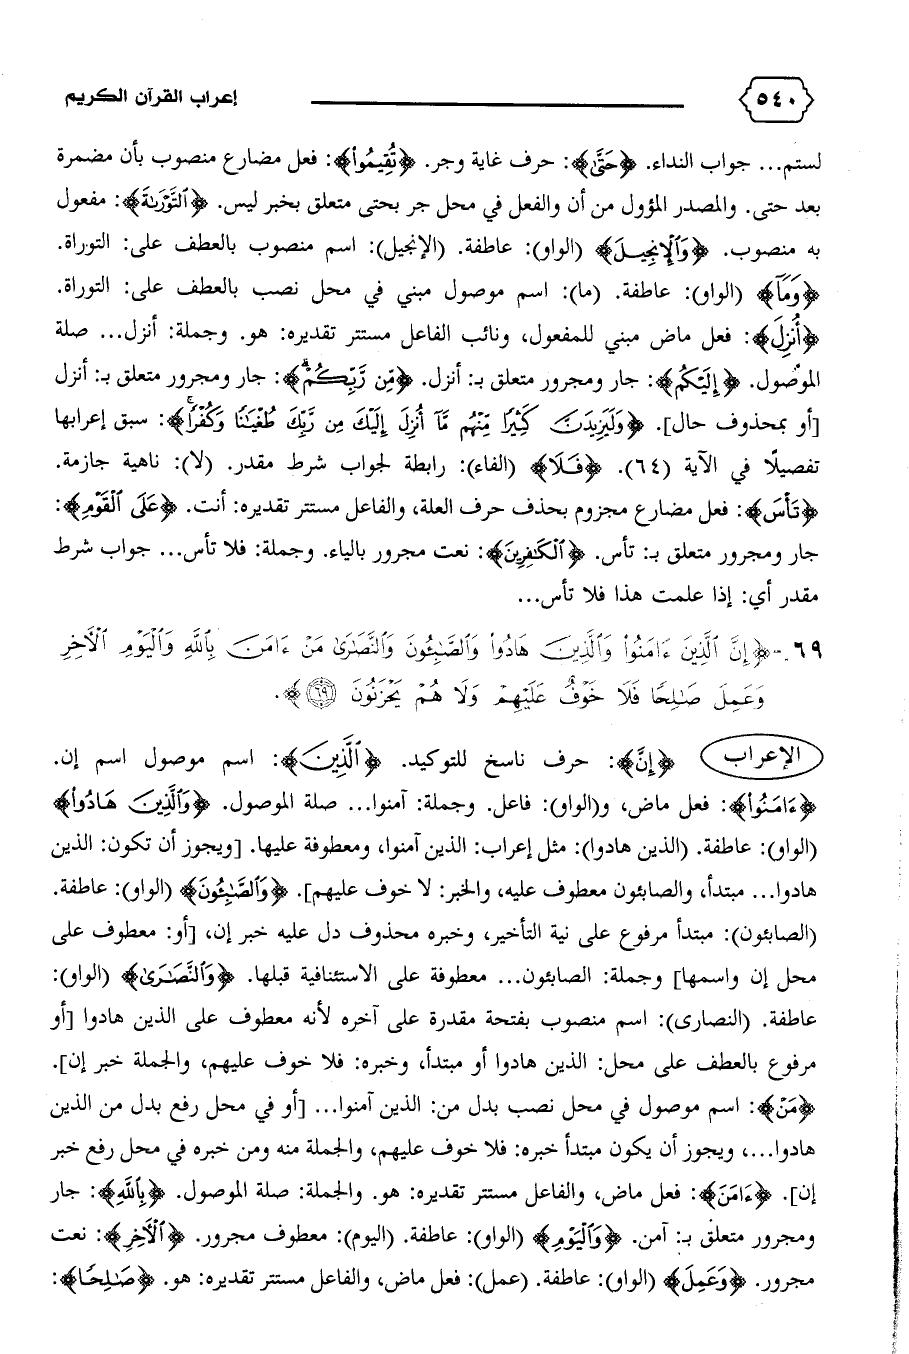 ٥٤٠ إعراب القرآن الكريم
لستم... جواب النداء. ﴿حَتَّىٰ﴾: حرف غاية وجر. ﴿تُقِيمُوا۟﴾: فعل مضارع منصوب بأن مضمرة
بعد حتى. والمصدر المؤول من أن والفعل في محل جر بحتى متعلق بخبر ليس. ﴿ٱلتَّوْرَىٰةَ﴾: مفعول
به منصوب. ﴿وَٱلْإِنجِيلَ﴾ (الواو): عاطفة. (الإنجيل): اسم منصوب بالعطف على: التوراة.
﴿وَمَآ﴾ (الواو): عاطفة. (ما): اسم موصول مبني في محل نصب بالعطف على: التوراة.
﴿أُنزِلَ﴾: فعل ماض مبني للمفعول، ونائب الفاعل مستتر تقديره: هو. وجملة: أنزل... صلة
الموصول. ﴿إِلَيْكُم﴾: جار ومجرور متعلق بـ: أنزل. ﴿مِّن رَّبِّكُمْ ۗ﴾: جار ومجرور متعلق بـ: أنزل
[أو بمحذوف حال]. ﴿وَلَيَزِيدَنَّ كَثِيرًا مِّنْهُم مَّآ أُنزِلَ إِلَيْكَ مِن رَّبِّكَ طُغْيَـٰنًا وَكُفْرًا ۖ﴾: سبق إعرابها
تفصيلًا في الآية (٦٤). ﴿فَلَا﴾ (الفاء): رابطة لجواب شرط مقدر. (لا): ناهية جازمة.
﴿تَأْسَ﴾: فعل مضارع مجزوم بحذف حرف العلة، والفاعل مستتر تقديره: أنت. ﴿عَلَى ٱلْقَوْمِ﴾:
جار ومجرور متعلق بـ: تأس. ﴿ٱلْكَـٰفِرِينَ﴾: نعت مجرور بالياء. وجملة: فلا تأس... جواب شرط
مقدر أي: إذا علمت هذا فلا تأس...
٦٩ـ ﴿إِنَّ ٱلَّذِينَ ءَامَنُوا۟ وَٱلَّذِينَ هَادُوا۟ وَٱلصَّـٰبِـُٔونَ وَٱلنَّصَـٰرَىٰ مَنْ ءَامَنَ بِٱللَّهِ وَٱلْيَوْمِ ٱلْـَٔاخِرِ
وَعَمِلَ صَـٰلِحًا فَلَا خَوْفٌ عَلَيْهِمْ وَلَا هُمْ يَحْزَنُونَ ۝٦٩﴾.
الإعراب ﴿إِنَّ﴾: حرف ناسخ للتوكيد. ﴿ٱلَّذِينَ﴾: اسم موصول اسم إن.
﴿ءَامَنُوا۟﴾: فعل ماض، و(الواو): فاعل. وجملة: آمنوا... صلة الموصول. ﴿وَٱلَّذِينَ هَادُوا۟﴾
(الواو): عاطفة. (الذين هادوا): مثل إعراب: الذين آمنوا، ومعطوفة عليها. [ويجوز أن تكون: الذين
هادوا... مبتدأ، والصابئون معطوف عليه، والخبر: لا خوف عليهم]. ﴿وَٱلصَّـٰبِـُٔونَ﴾ (الواو): عاطفة.
(الصابئون): مبتدأ مرفوع على نية التأخير، وخبره محذوف دل عليه خبر إن، [أو: معطوف على
محل إن واسمها] وجملة: الصابئون... معطوفة على الاستئنافية قبلها. ﴿وَٱلنَّصَـٰرَىٰ﴾ (الواو):
عاطفة. (النصارى): اسم منصوب بفتحة مقدرة على آخره لأنه معطوف على الذين هادوا [أو
مرفوع بالعطف على محل: الذين هادوا أو مبتدأ، وخبره: فلا خوف عليهم، والجملة خبر إن].
﴿مَنْ﴾: اسم موصول في محل نصب بدل من: الذين آمنوا... [أو في محل رفع بدل من الذين
هادوا...، ويجوز أن يكون مبتدأ خبره: فلا خوف عليهم، والجملة منه ومن خبره في محل رفع خبر
إن]. ﴿ءَامَنَ﴾: فعل ماض، والفاعل مستتر تقديره: هو. والجملة: صلة الموصول. ﴿بِٱللَّهِ﴾: جار
ومجرور متعلق بـ: آمن. ﴿وَٱلْيَوْمِ﴾ (الواو): عاطفة. (اليوم): معطوف مجرور. ﴿ٱلْـَٔاخِرِ﴾: نعت
مجرور. ﴿وَعَمِلَ﴾ (الواو): عاطفة. (عمل): فعل ماض، والفاعل مستتر تقديره: هو. ﴿صَـٰلِحًا﴾: